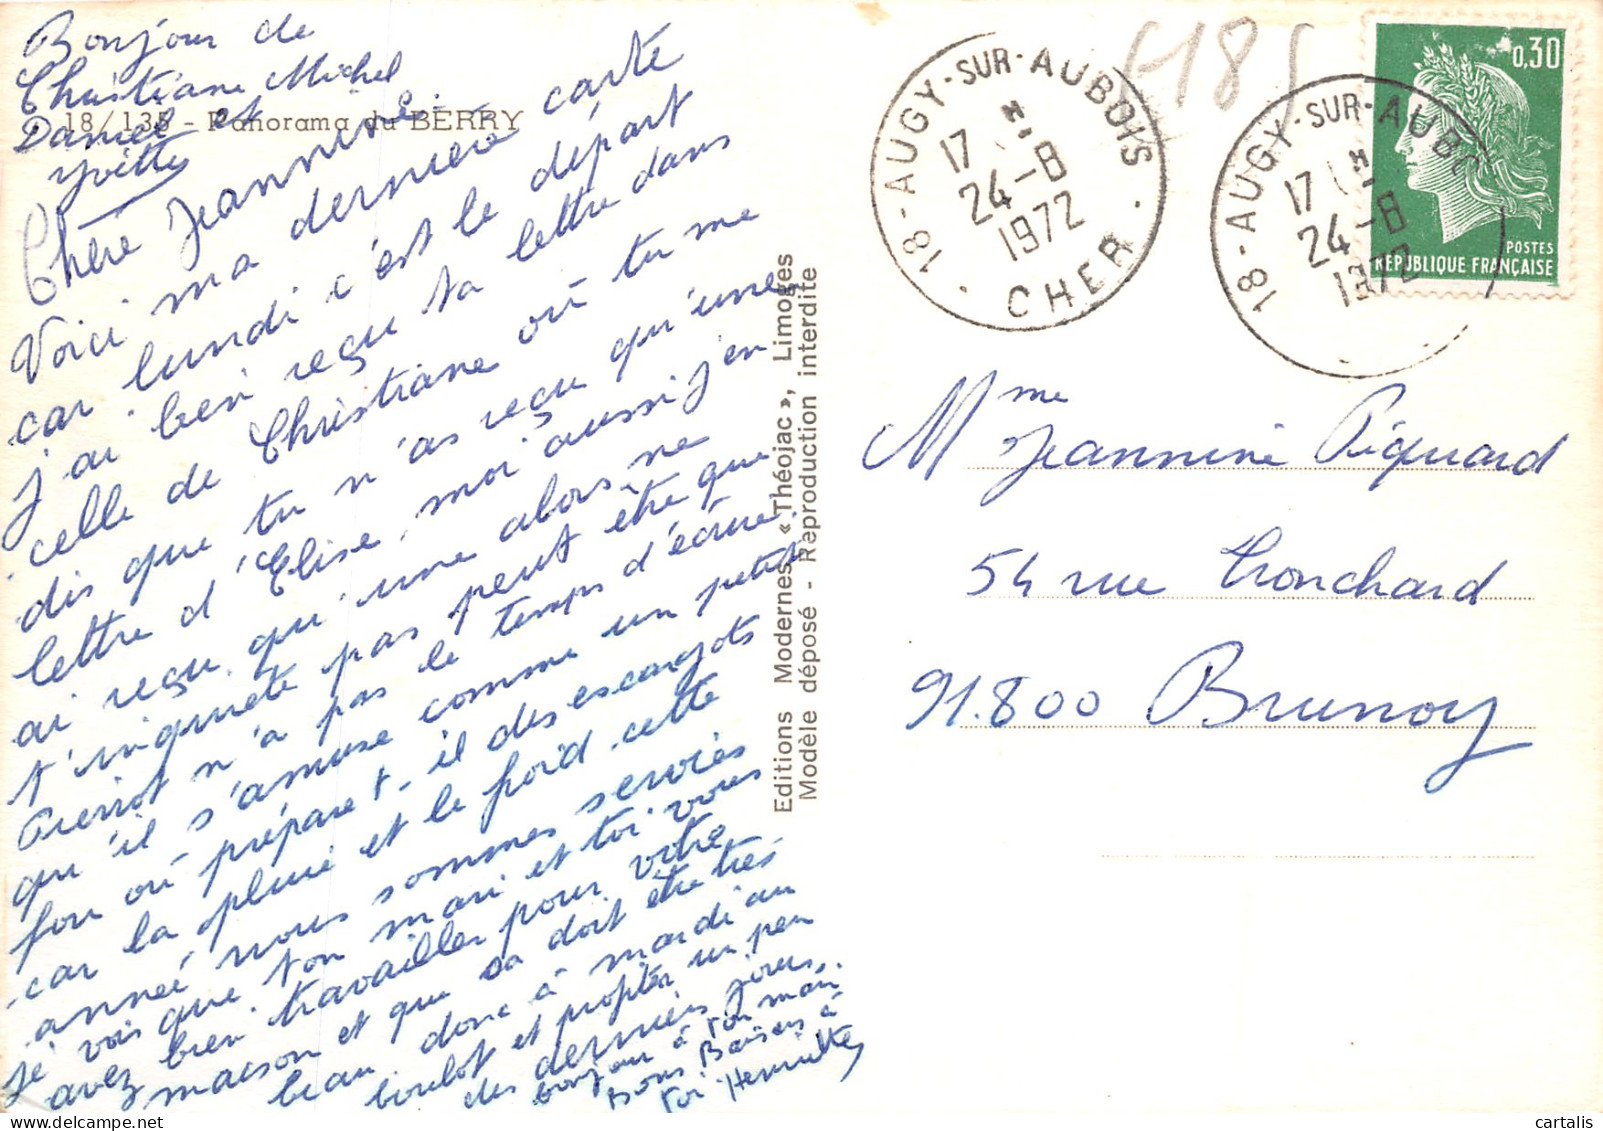 Bonjour de
Christiane Michel
Daniel et
Yvette
18/135 - Panorama du BERRY
Chère Jeannine.
Voici ma dernière carte
car lundi c'est le départ
j'ai bien reçu ta lettre dans
celle de Christiane où tu me
dis que tu n'as reçu qu'une
lettre d'Elise, moi aussi j'en
ai reçu qu'une alors ne
t'inquiète pas peut être que
Pierrot n'a pas le temps d'écrire.
qu'il s'amuse comme un petit
fou où prépare t-il des escargots
car la pluie et le froid cette
année nous sommes servies
je vois que ton mari et toi vous
avez bien travailler pour votre
maison et que sa doit être très
beau donc à mardi au
boulot et profiter un peu
des derniers jours.
bonjour à ton mari
Bons Baisers à
toi Henriette
Editions Modernes « Théojac », Limoges
Modèle déposé - Reproduction interdite
18 - AUGY-SUR-AUBOIS
17 H
24-8
1972
CHER
18 - AUGY-SUR-AUBO
17 H
24-8
1972
0,30
POSTES
RÉPUBLIQUE FRANÇAISE
Mme Jeannine Piquard
54 rue Tronchard
91.800 Brunoy
cartalis